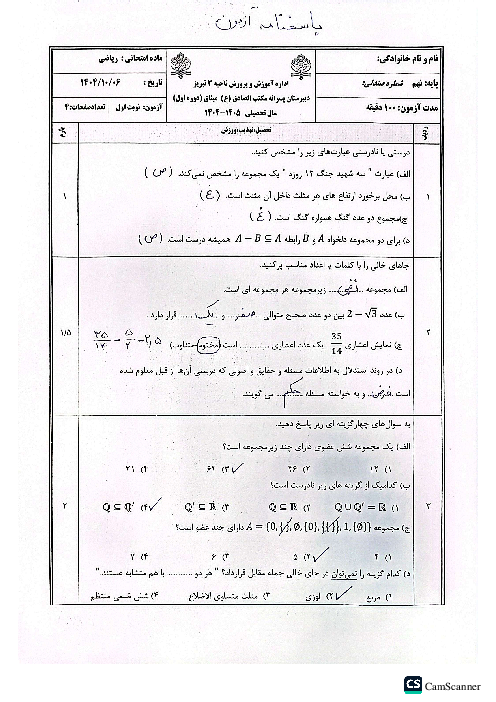 پاسخنامه آزمون
نام و نام خانوادگی:
اداره آموزش و پرورش ناحیه ۳ تبریز
ماده امتحانی: ریاضی
پایه: نهم
دبیرستان پسرانه مکتب الصادق (ع) میثاق (دوره اول)
تاریخ: ۱۴۰۴/۱۰/۰۶
مدت آزمون: ۱۰۰ دقیقه
سال تحصیلی ۱۴۰۵-۱۴۰۴
آزمون: نوبت اول تعدادصفحات: ۴
ردیف
بارم
درستی یا نادرستی عبارت‌های زیر را مشخص کنید.
الف) عبارت " سه شهید جنگ ۱۲ روزه " یک مجموعه را مشخص نمی‌کند. ( ص )
ب) محل برخورد ارتفاع های هر مثلث داخل آن مثلث است. ( غ )
ج) مجموع دو عدد گنگ همواره گنگ است. ( غ )
د) برای دو مجموعه دلخواه A و B رابطه A − B ⊆ A همیشه درست است. ( ص )
۱
۱
جاهای خالی را با کلمات یا اعداد مناسب پر کنید.
الف) مجموعه ..تهی.. زیرمجموعه هر مجموعه ای است.
ب) عدد 2 − √3 بین دو عدد صحیح متوالی ..صفر.. و ..یک.. قرار دارد.
ج) نمایش اعشاری 35/14 یک عدد اعشاری .......... است (مختوم-متناوب)
۳۵/۱۴ = ۵/۲ = ۲,۵
د) در روند استدلال به اطلاعات مسئله و حقایق و اصولی که درستی آن‌ها از قبل معلوم شده
است ..فرض.. و به خواسته مسئله ..حکم.. می گویند.
۲
۱/۵
به سوال‌های چهارگزینه ای زیر پاسخ دهید.
الف) یک مجموعه شش عضوی دارای چند زیرمجموعه است؟
۱) ۱۲ ۲) ۳۶ ۳) ۶۴ ✓ ۴) ۳۱
ب) کدامیک از گزینه های زیر نادرست است؟
۱) Q ∪ Q' = R ۲) Q ⊆ R ۳) Q' ⊆ R ۴) Q ⊆ Q' ✓
ج) مجموعه A = {0, {1}, ∅, {0}, {1}, 1, {∅}} دارای چند عضو است؟
۱) ۴ ۲) ۵ ✓ ۳) ۶ ۴) ۷
د) کدام گزینه را نمی‌توان در جای خالی جمله مقابل قرار داد؟ " هر دو .......... با هم متشابه هستند."
۱) مربع ۲) لوزی ✓ ۳) مثلث متساوی الاضلاع ۴) شش ضلعی منتظم
۳
۲
CS CamScanner